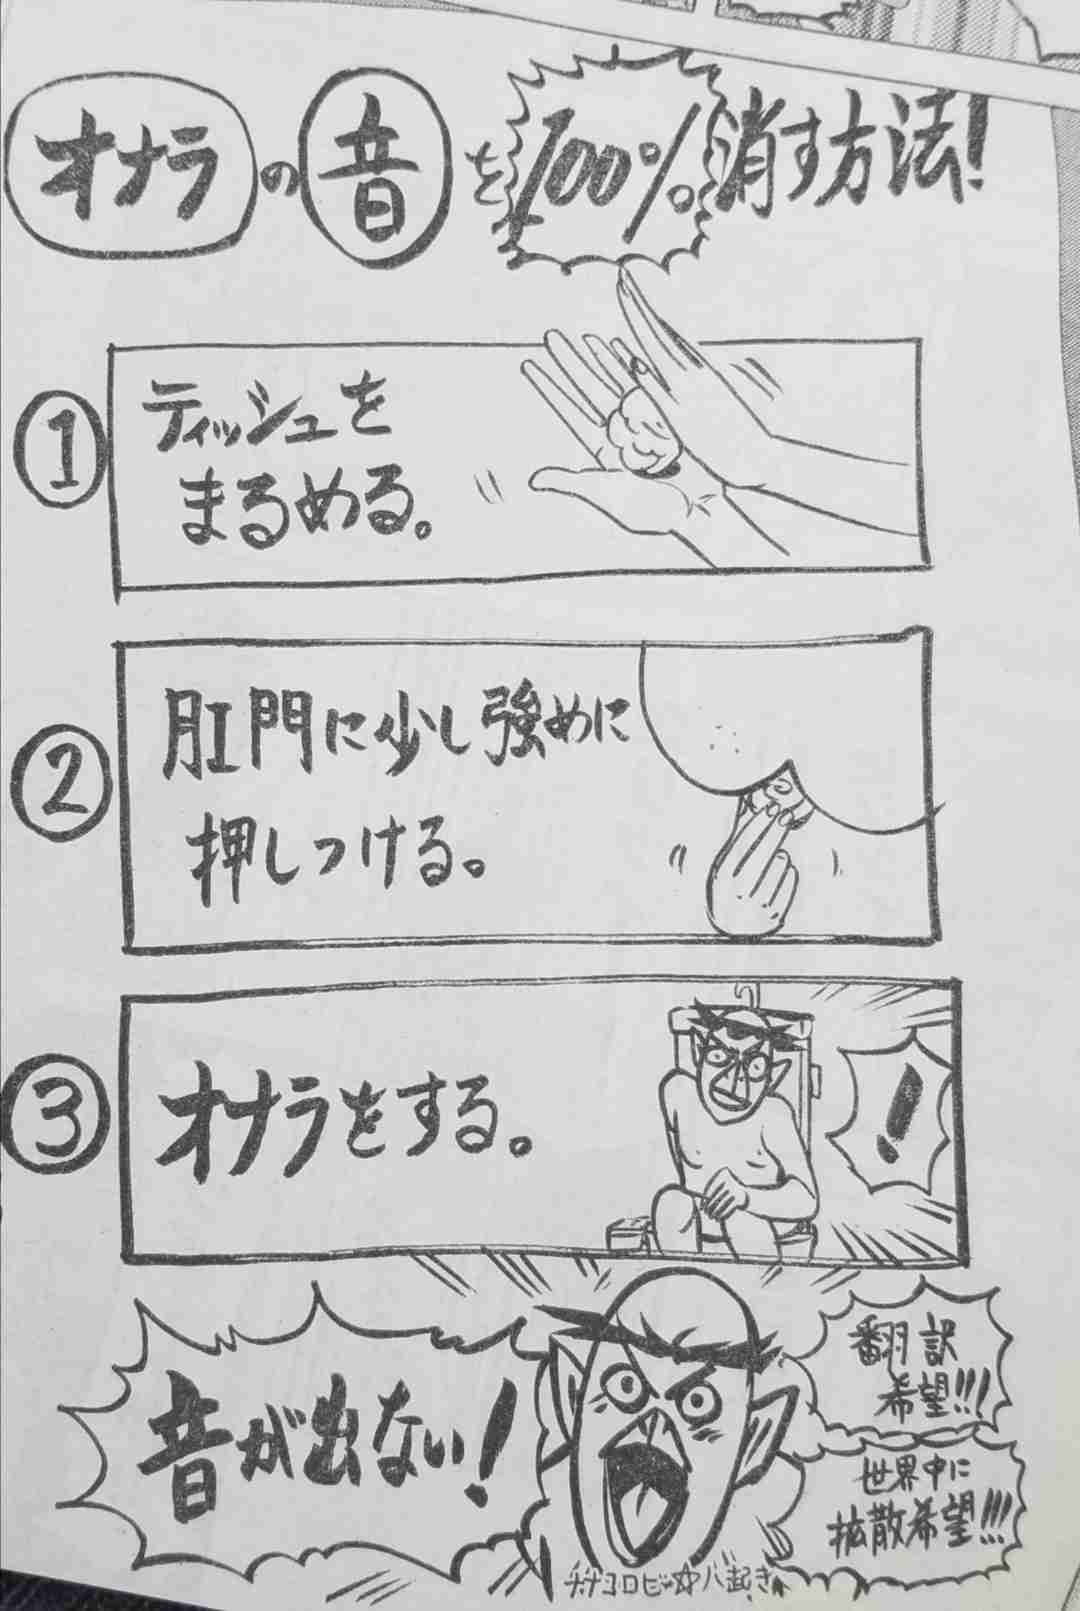 オナラの音を100%消す方法!
①
ティッシュを
まるめる。
②
肛門に少し強めに
押しつける。
③
オナラをする。
!
音が出ない!
翻訳
希望!!!
世界中に
拡散希望!!!
ナナコロビ☆八起き